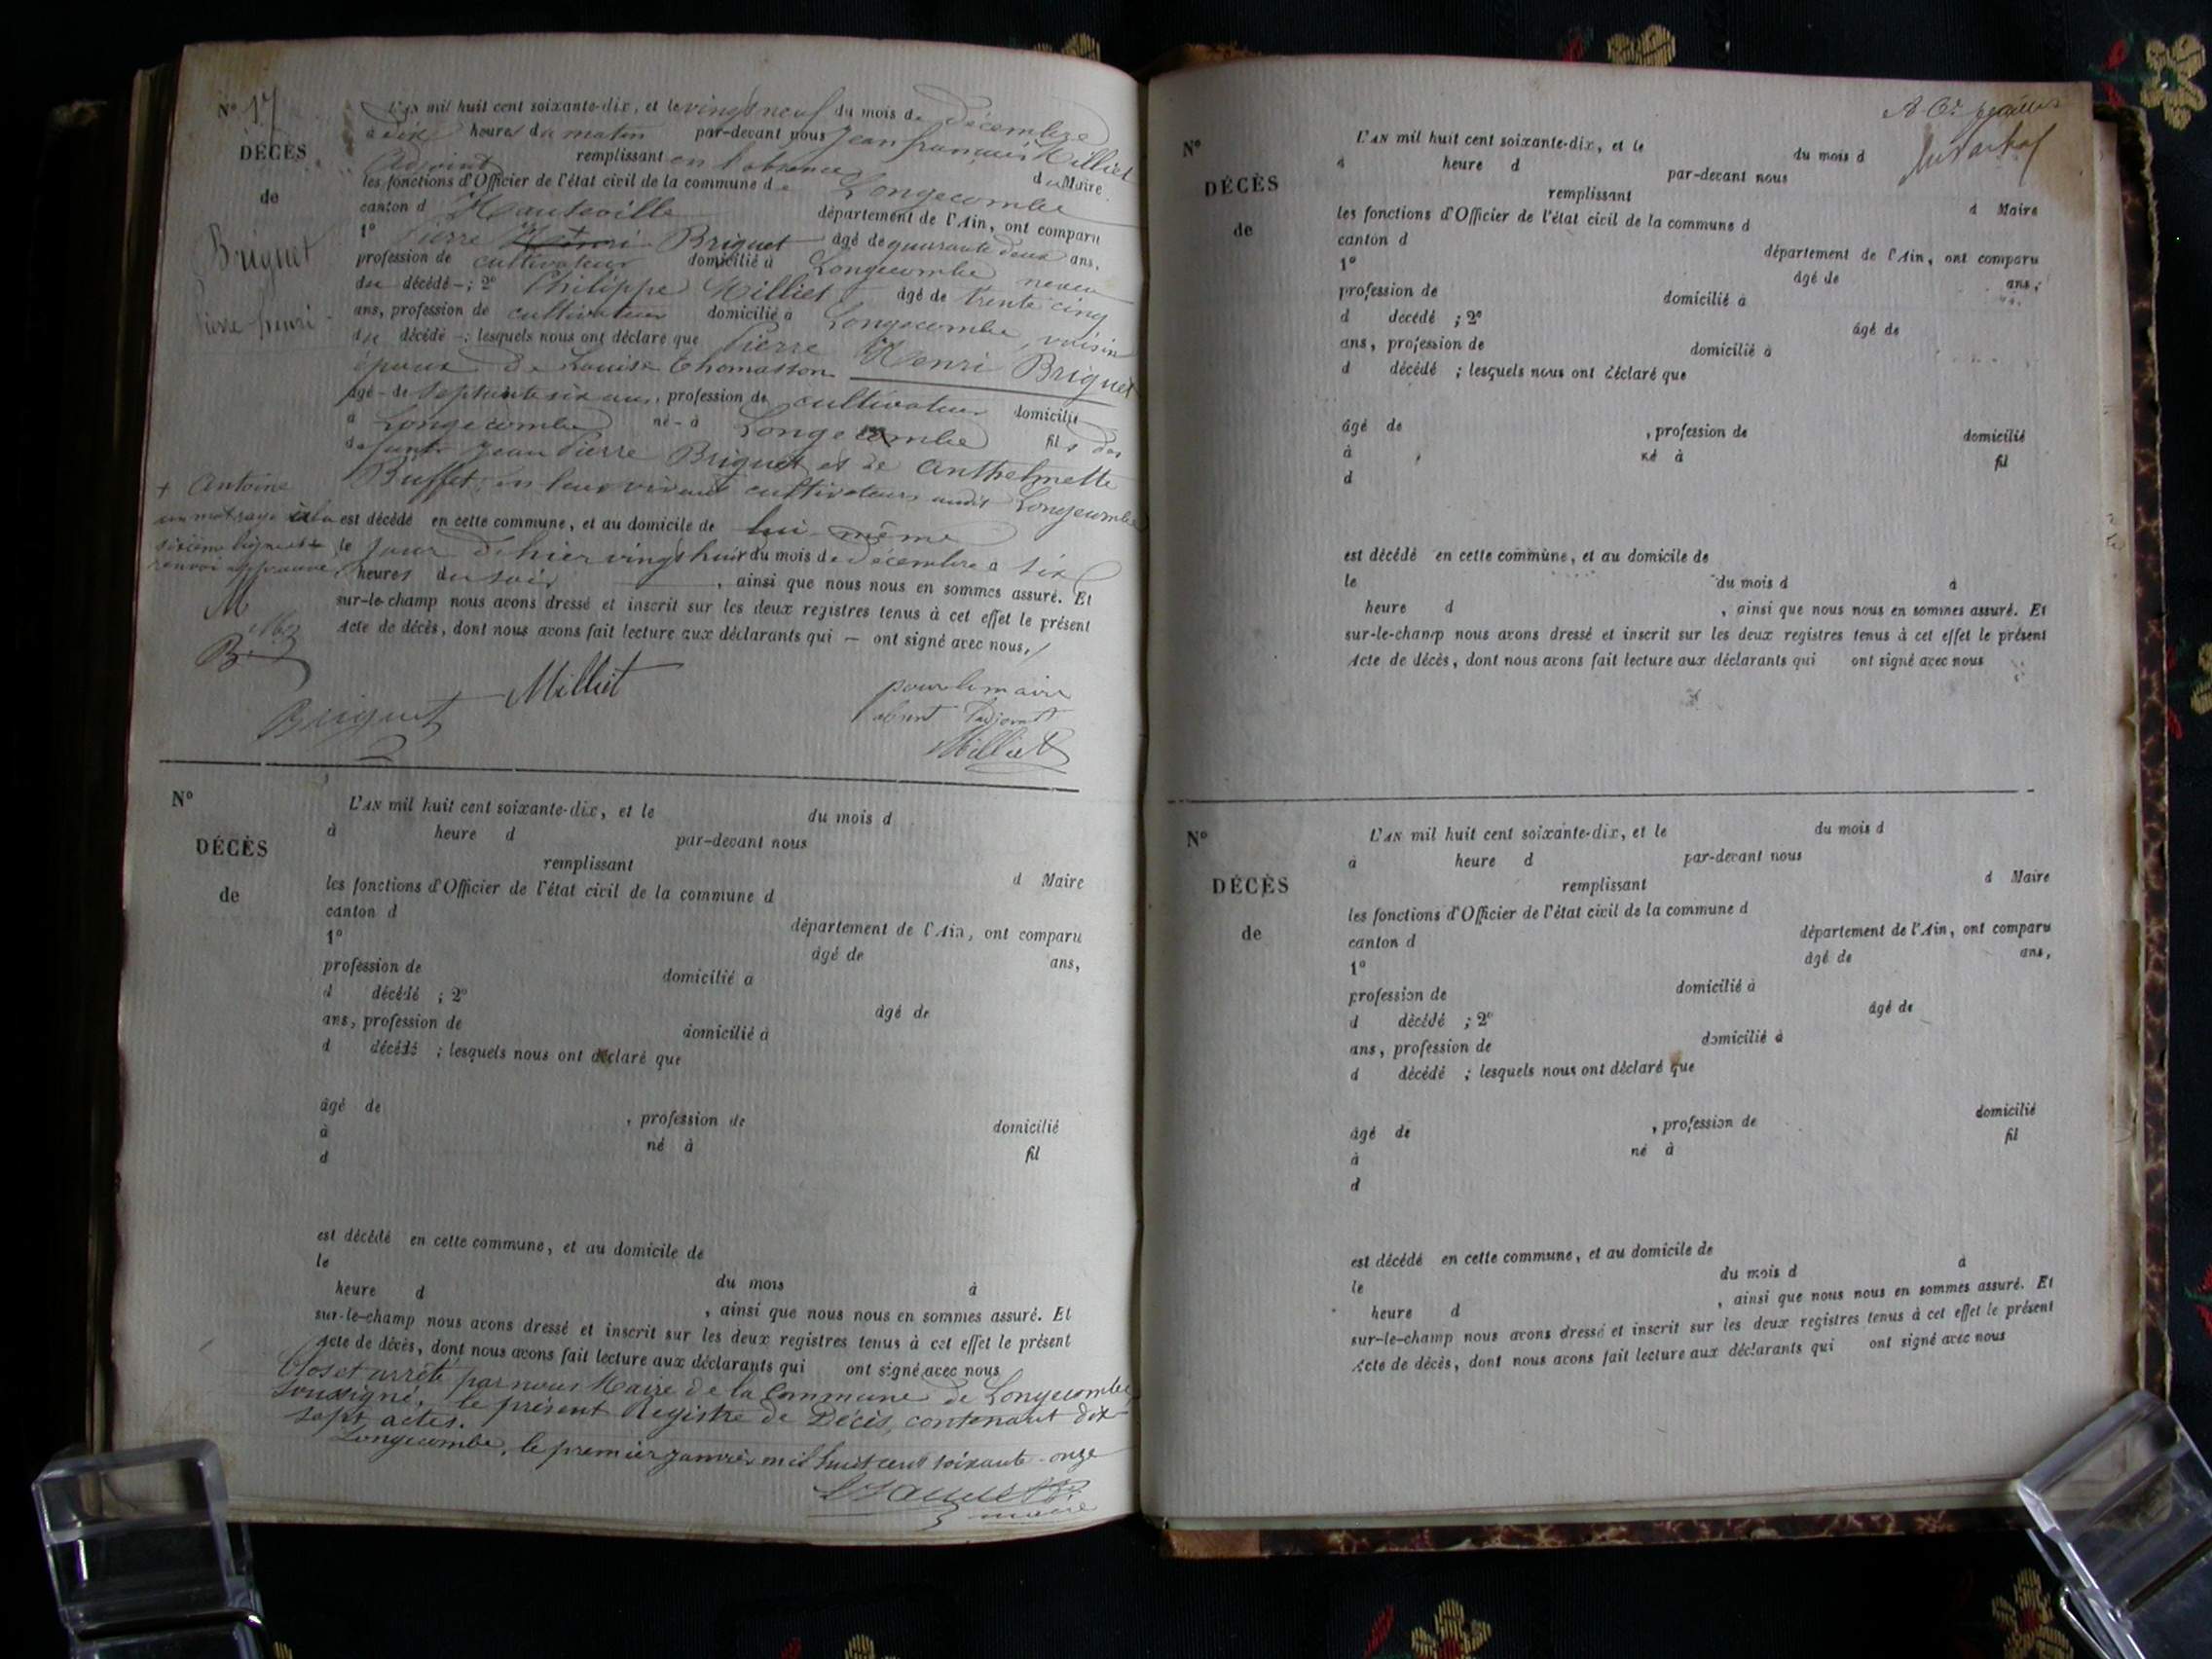 N° 17
DÉCÈS
de
Briguet
Pierre henri
L'AN mil huit cent soixante-dix, et le vingt neuf du mois de Décembre
à dix heures du matin par-devant nous Jean françois Milliet
Adjoint remplissant en l'absence du Maire
les fonctions d'Officier de l'état civil de la commune de Longecombe
canton d Hauteville département de l'Ain, ont comparu
1° Pierre Briguet âgé de quarante deux ans,
profession de cultivateur domicilié à Longecombe neveu
du décédé ; 2° Philippe Milliet âgé de trente cinq
ans, profession de cultivateur domicilié à Longecombe, voisin
du décédé ; lesquels nous ont déclaré que Pierre Henri Briguet
époux de Louise Thomasson
âgé de Septante six ans, profession de cultivateur domicilié
à Longecombe né à Longecombe fils des
defunts Jean Pierre Briguet et de Anthelmette
Buffet, en leur vivant cultivateurs audit Longecombe
est décédé en cette commune, et au domicile de lui-même
le jour d'hier vingt huit du mois de décembre à six
heures du soir , ainsi que nous nous en sommes assuré. Et
sur-le-champ nous avons dressé et inscrit sur les deux registres tenus à cet effet le présent
Acte de décès, dont nous avons fait lecture aux déclarants qui — ont signé avec nous,
+ Antoine
un mot rayé à la
sixième ligne et
renvoi approuvé
M
B
Briguet
Milliet
pour le maire
absent l'adjoint
Milliet
N°
DÉCÈS
de
L'AN mil huit cent soixante-dix, et le du mois d
à heure d par-devant nous
remplissant d Maire
les fonctions d'Officier de l'état civil de la commune d
canton d département de l'Ain, ont comparu
1° âgé de ans,
profession de domicilié à
d décédé ; 2° âgé de
ans, profession de domicilié à
d décédé ; lesquels nous ont déclaré que
âgé de , profession de domicilié
à né à fil
d
est décédé en cette commune, et au domicile de
le du mois à
heure d , ainsi que nous nous en sommes assuré. Et
sur-le-champ nous avons dressé et inscrit sur les deux registres tenus à cet effet le présent
Acte de décès, dont nous avons fait lecture aux déclarants qui ont signé avec nous
Clos et arrêté par nous Maire de la Commune de Longecombe,
Soussigné, le présent Registre de Décès, contenant dix
sept actes.
Longecombe, le premier janvier mil huit cent soixante-onze
maire
N°
DÉCÈS
de
L'AN mil huit cent soixante-dix, et le du mois d
à heure d par-devant nous
remplissant d Maire
les fonctions d'Officier de l'état civil de la commune d
canton d département de l'Ain, ont comparu
1° âgé de ans,
profession de domicilié à
d décédé ; 2° âgé de
ans, profession de domicilié à
d décédé ; lesquels nous ont déclaré que
âgé de , profession de domicilié
à né à fil
d
est décédé en cette commune, et au domicile de
le du mois d à
heure d , ainsi que nous nous en sommes assuré. Et
sur-le-champ nous avons dressé et inscrit sur les deux registres tenus à cet effet le présent
Acte de décès, dont nous avons fait lecture aux déclarants qui ont signé avec nous
N°
DÉCÈS
de
L'AN mil huit cent soixante-dix, et le du mois d
à heure d par-devant nous
remplissant d Maire
les fonctions d'Officier de l'état civil de la commune d
canton d département de l'Ain, ont comparu
1° âgé de ans,
profession de domicilié à
d décédé ; 2° âgé de
ans, profession de domicilié à
d décédé ; lesquels nous ont déclaré que
âgé de , profession de domicilié
à né à fil
d
est décédé en cette commune, et au domicile de
le du mois d à
heure d , ainsi que nous nous en sommes assuré. Et
sur-le-champ nous avons dressé et inscrit sur les deux registres tenus à cet effet le présent
Acte de décès, dont nous avons fait lecture aux déclarants qui ont signé avec nous